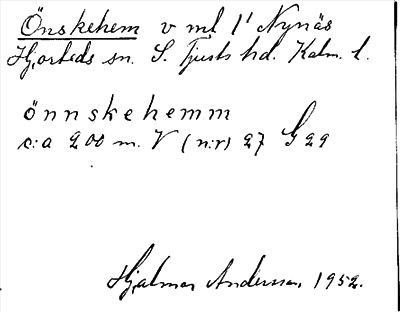 Önskehem v ml l' Nynäs
Hjorteds sn. S. Tjusts hd. Kalm. l.
önnskehemm
c:a 200 m. V (n:r) 27 G 29
Hjalmar Andersson, 1952.